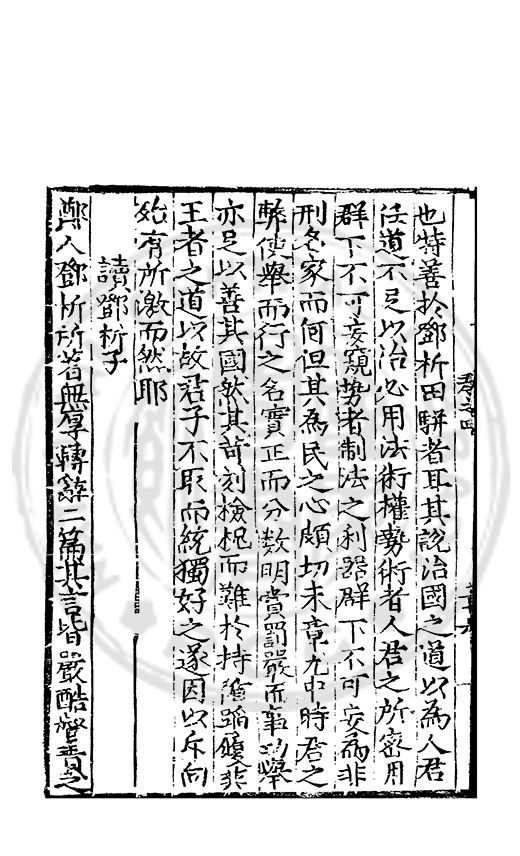 也特善於鄧析田駢者耳其說治國之道以為人君
任道不足以治必用法術權勢術者人君之所密用
群下不可妄窺勢者制法之利器群下不可妄為非
刑名家而何但其為民之心頗切末章尤中時君之
弊使舉而行之名實正而分數明賞罰嚴而事功舉
亦足以善其國然其苛刻檢柅而難於持循蹈履非
王者之道以故君子不取而統獨好之遂因以斥向
始有所激而然耶
讀鄧析子
鄭人鄧析所著無厚轉辭二篇其言皆嚴酷督責之